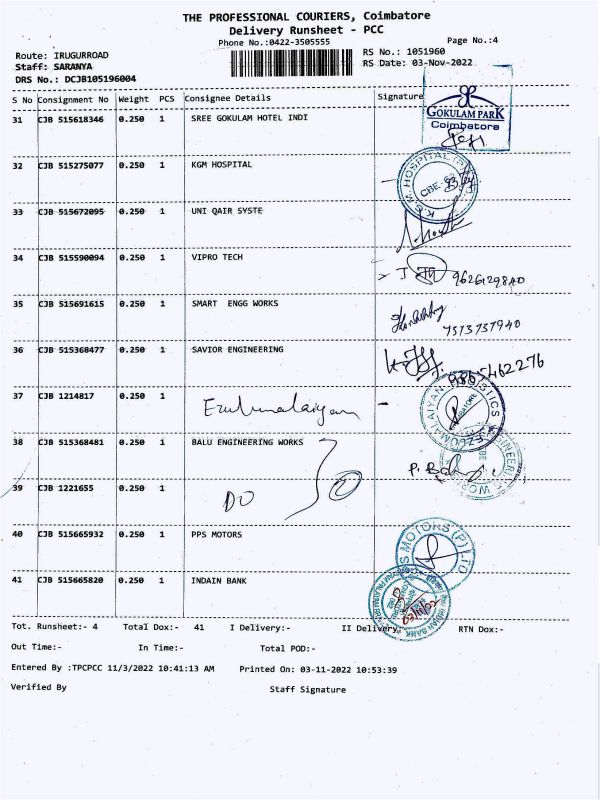 THE PROFESSIONAL COURIERS, Coimbatore
Delivery Runsheet - PCC
Phone No.:0422-3505555
Page No.:4
Route: IRUGURROAD
RS No.: 1051960
Staff: SARANYA
RS Date: 03-Nov-2022
DRS No.: DCJB105196004
S No Consignment No Weight PCS Consignee Details Signature
GOKULAM PARK
Coimbatore
31 CJB 515618346 0.250 1 SREE GOKULAM HOTEL INDI
32 CJB 515275077 0.250 1 KGM HOSPITAL
33 CJB 515672095 0.250 1 UNI QAIR SYSTE
34 CJB 515590094 0.250 1 VIPRO TECH
9626129840
35 CJB 515691615 0.250 1 SMART ENGG WORKS
7513737940
36 CJB 515368477 0.250 1 SAVIOR ENGINEERING
37 CJB 1214817 0.250 1 Ezhumalaiyan
38 CJB 515368481 0.250 1 BALU ENGINEERING WORKS
39 CJB 1221655 0.250 1 DO
40 CJB 515665932 0.250 1 PPS MOTORS
S MOTORS (P) LTD
41 CJB 515665820 0.250 1 INDAIN BANK
Tot. Runsheet:- 4 Total Dox:- 41 I Delivery:- II Delivery:- RTN Dox:-
Out Time:- In Time:- Total POD:-
Entered By :TPCPCC 11/3/2022 10:41:13 AM Printed On: 03-11-2022 10:53:39
Verified By Staff Signature